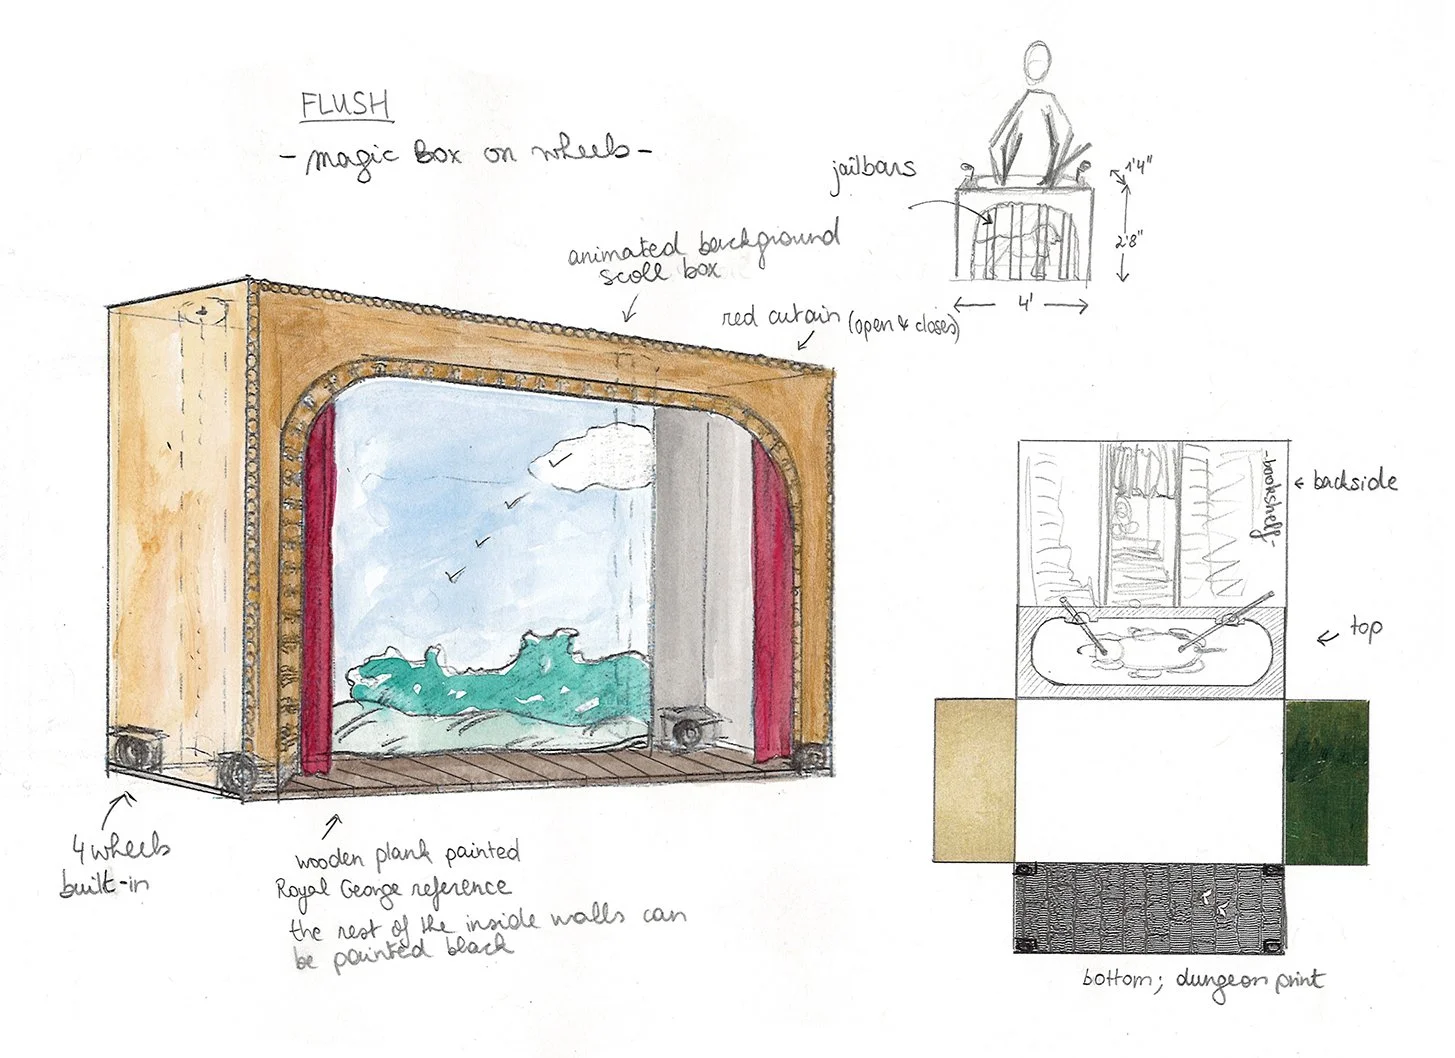 FLUSH
- magic Box on wheels -
jailbars
1'4"
2'8"
4'
animated background
scoll box
red cutain (open & closes)
-bookshelf-
backside
top
4 wheels
built-in
wooden plank painted
Royal George reference
the rest of the inside walls can
be painted black
bottom; dungeon print